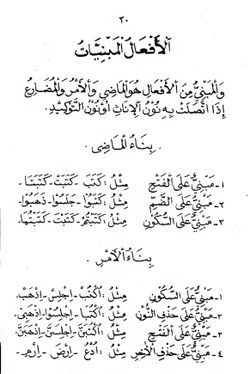 ٣٠
الأفعال المبنيات
والمبني من الأفعال هو الماضي والأمر والمضارع
إذا اتصلت به نون الإناث أو نون التوكيد.
. بناء الماضي .
١- مبني على الفتح مثل: كتب - كتبت - كتبتا -
٢- مبني على الضم مثل: كتبوا - جلسوا - ذهبوا -
٣- مبني على السكون مثل: كتبتم - كتبت - كتبتما -
. بناء الأمر .
١- مبني على السكون مثل: اكتب - اجلس - اذهب -
٢- مبني على حذف النون مثل: اكتبا - اجلسوا - اذهبي -
٣- مبني على الفتح مثل: اكتبن - اجلسن - اذهبن -
٤- مبني على حذف الآخر مثل: ادع - ارض - ارم -